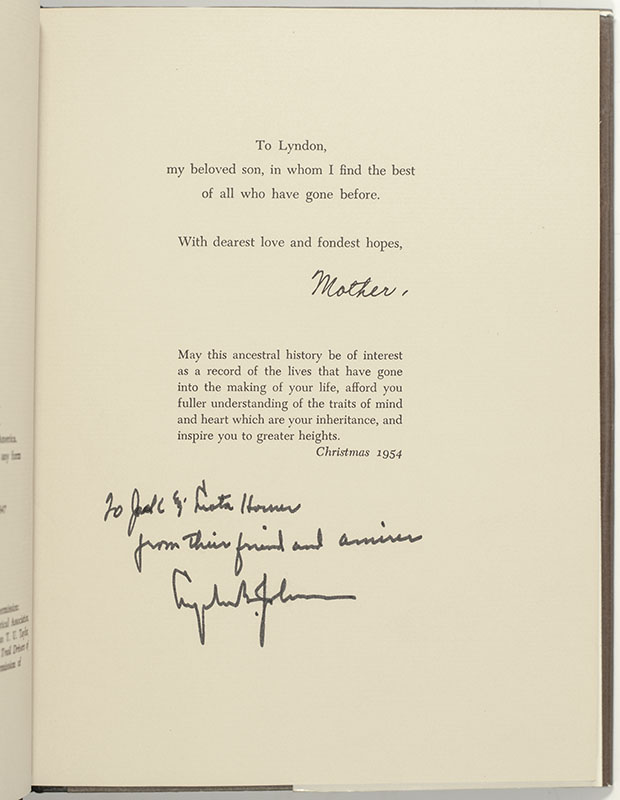 To Lyndon,
my beloved son, in whom I find the best
of all who have gone before.
With dearest love and fondest hopes,
Mother.
May this ancestral history be of interest
as a record of the lives that have gone
into the making of your life, afford you
fuller understanding of the traits of mind
and heart which are your inheritance, and
inspire you to greater heights.
Christmas 1954
To Jack &
from their friend and amirer
Lyndon B. Johnson
any form
T. U.